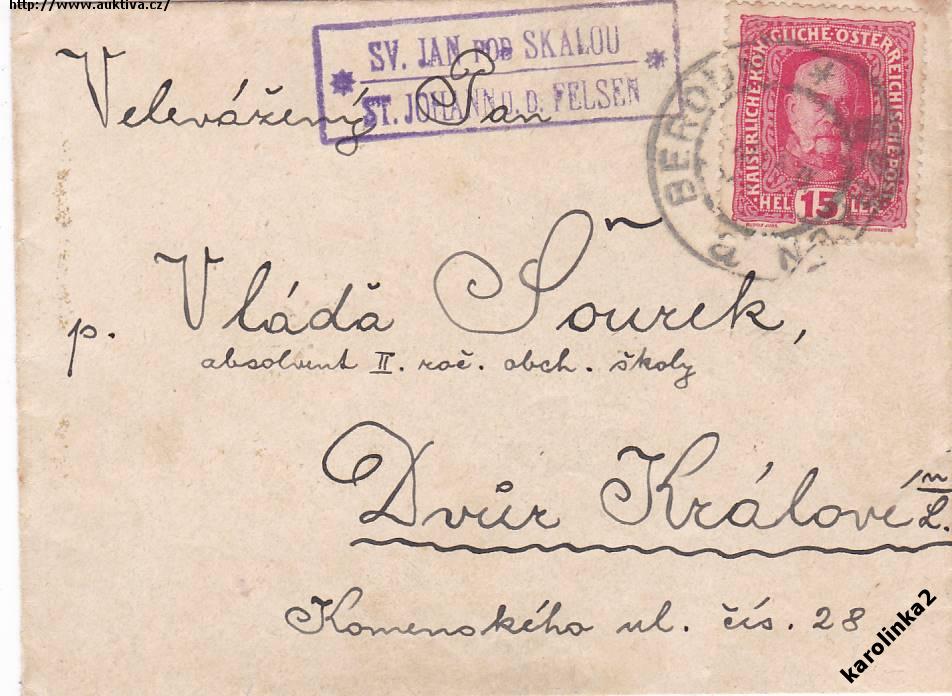 http://www.auktiva.cz/
SV. JAN POD SKALOU
ST. JOHANN U. D. FELSEN
KAISERLICHE KÖNIGLICHE ÖSTERREICHISCHE POST
HELLER
15
BEROUN
a
Velevážený Pan
p. Vláďa Šourek,
absolvent II. roč. obch. školy
Dvůr Králové n/L.
Komenského ul. čís. 28
karolinka2